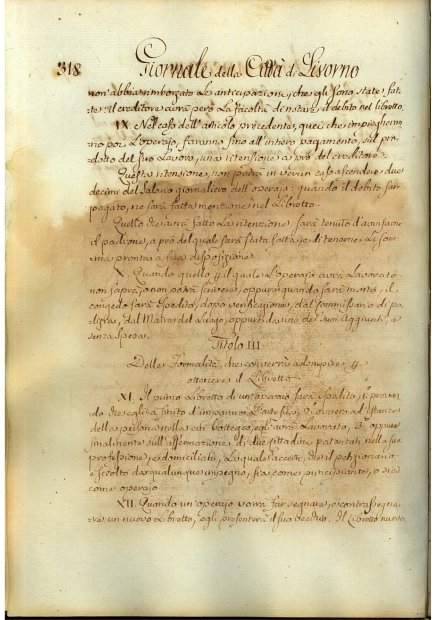 318 Giornale della Città di Livorno
non' abbia rimborzato Le anticipazioni, che gli sono state fat-
te: il creditore avrà però La facoltà d'instare il debito nel libretto.
IX. Nel caso dell'articolo precedente, quei che impiegheran-
no poi L'operajo, faranno fino all'intero pagamento, sul pro-
dotto del suo Lavoro, una ritensione a prò del creditore.
Questa ritensione, non potrà in verun caso ascendere a due
decimi del Salario giornaliero dell'operajo: quando il debito sarà
pagato, ne sarà fatta menzione nel Libretto.
Quello che avrà fatto La ritenzione, sarà tenuto d'avvisarne
il padrone, a prò del quale sarà stata fatta, e di tenerne La som-
ma pronta a sua disposizione.
X. Quando quello p il quale L'operajo avrà Lavorato
non saprà, o non potrà scrivere, oppure quando sarà morto, il
congedo sarà spedito, dopo verificazione, dal Commissario di po-
lizia, dal Maire del Luogo, oppure da uno dei suoi Aggiunti, e
senza spesa.
Titolo III
Delle Formalità, che converrà adempire, p
ottenere il Libretto
XI. Il primo Libretto di un'operajo sarà spedito, 1.º provan-
do che egli ha finito d'imparar L'arte sua, 2.º ovvero ad istanza
della persona nella cui bottega egli avrà Lavorato, 3.º oppure
finalmente sull'affermazione di due cittadini patentati nella sua
professione, e domiciliati, La quale accerti, che il petizionario
è sciolto da qualunque impegno, sia come principiante, o sia
come operajo.
XII. Quando un'operajo vorrà far segnare, e contrassegna-
re un nuovo Libretto, egli presenterà il suo vecchio. Il Libretto nuovo